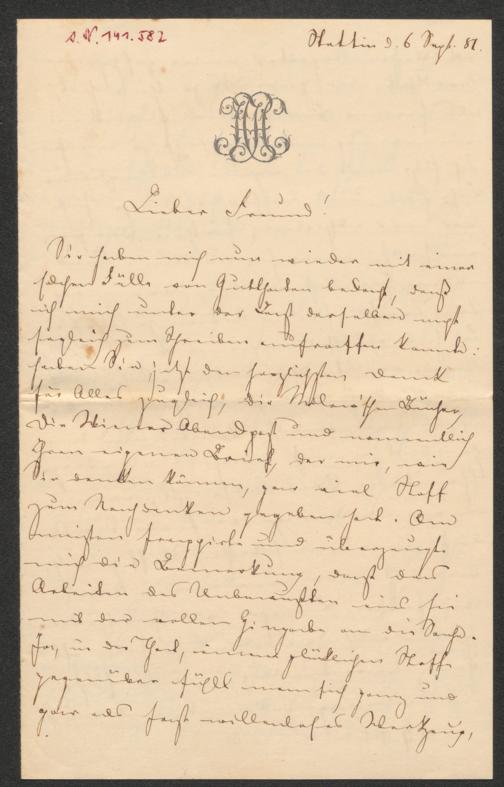 A.N. 141.582
Stettin d. 6 Sept. 81.
Lieber Freund!
Sie haben mich nun wieder mit einer
solchen Fülle von Gutthaten bedacht, daß
ich mich unter der Last derselben nicht
sogleich zum Schreiben aufraffen konnte:
haben Sie jetzt den herzlichsten Dank
für Alles zugleich, die Bücher,
die Wiener Abendpost und namentlich
Ihren eigenen Brief, der mir, wie
Sie denken können, gar viel Stoff
zum Nachdenken gegeben hat. Am
meisten frappirte und überzeugte
mich die Bemerkung, daß das
Arbeiten des Unbewußten eins sei
mit der vollen Hingabe an die Sache.
Ja, in der That, einem glücklichen Stoffe
gegenüber fühlt man sich ganz und
gar als fast willenloses Werkzeug,